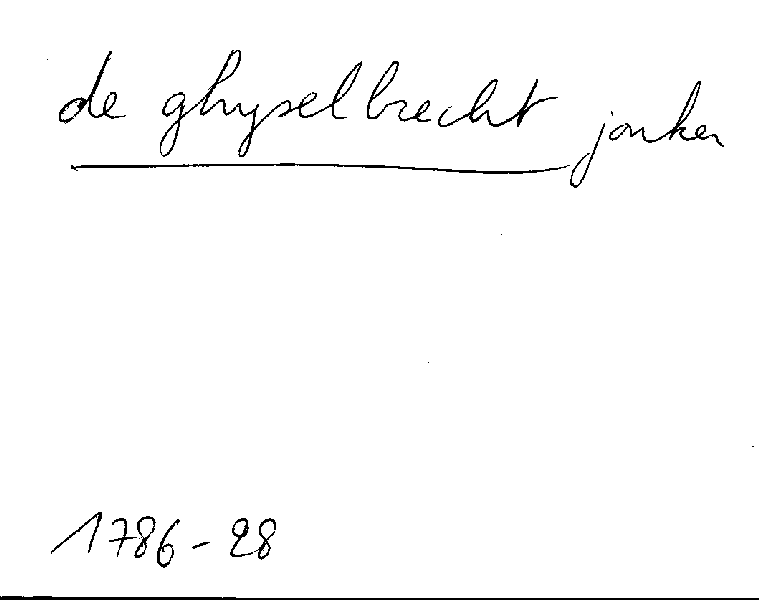 de ghyselbrecht jonker
1786-28